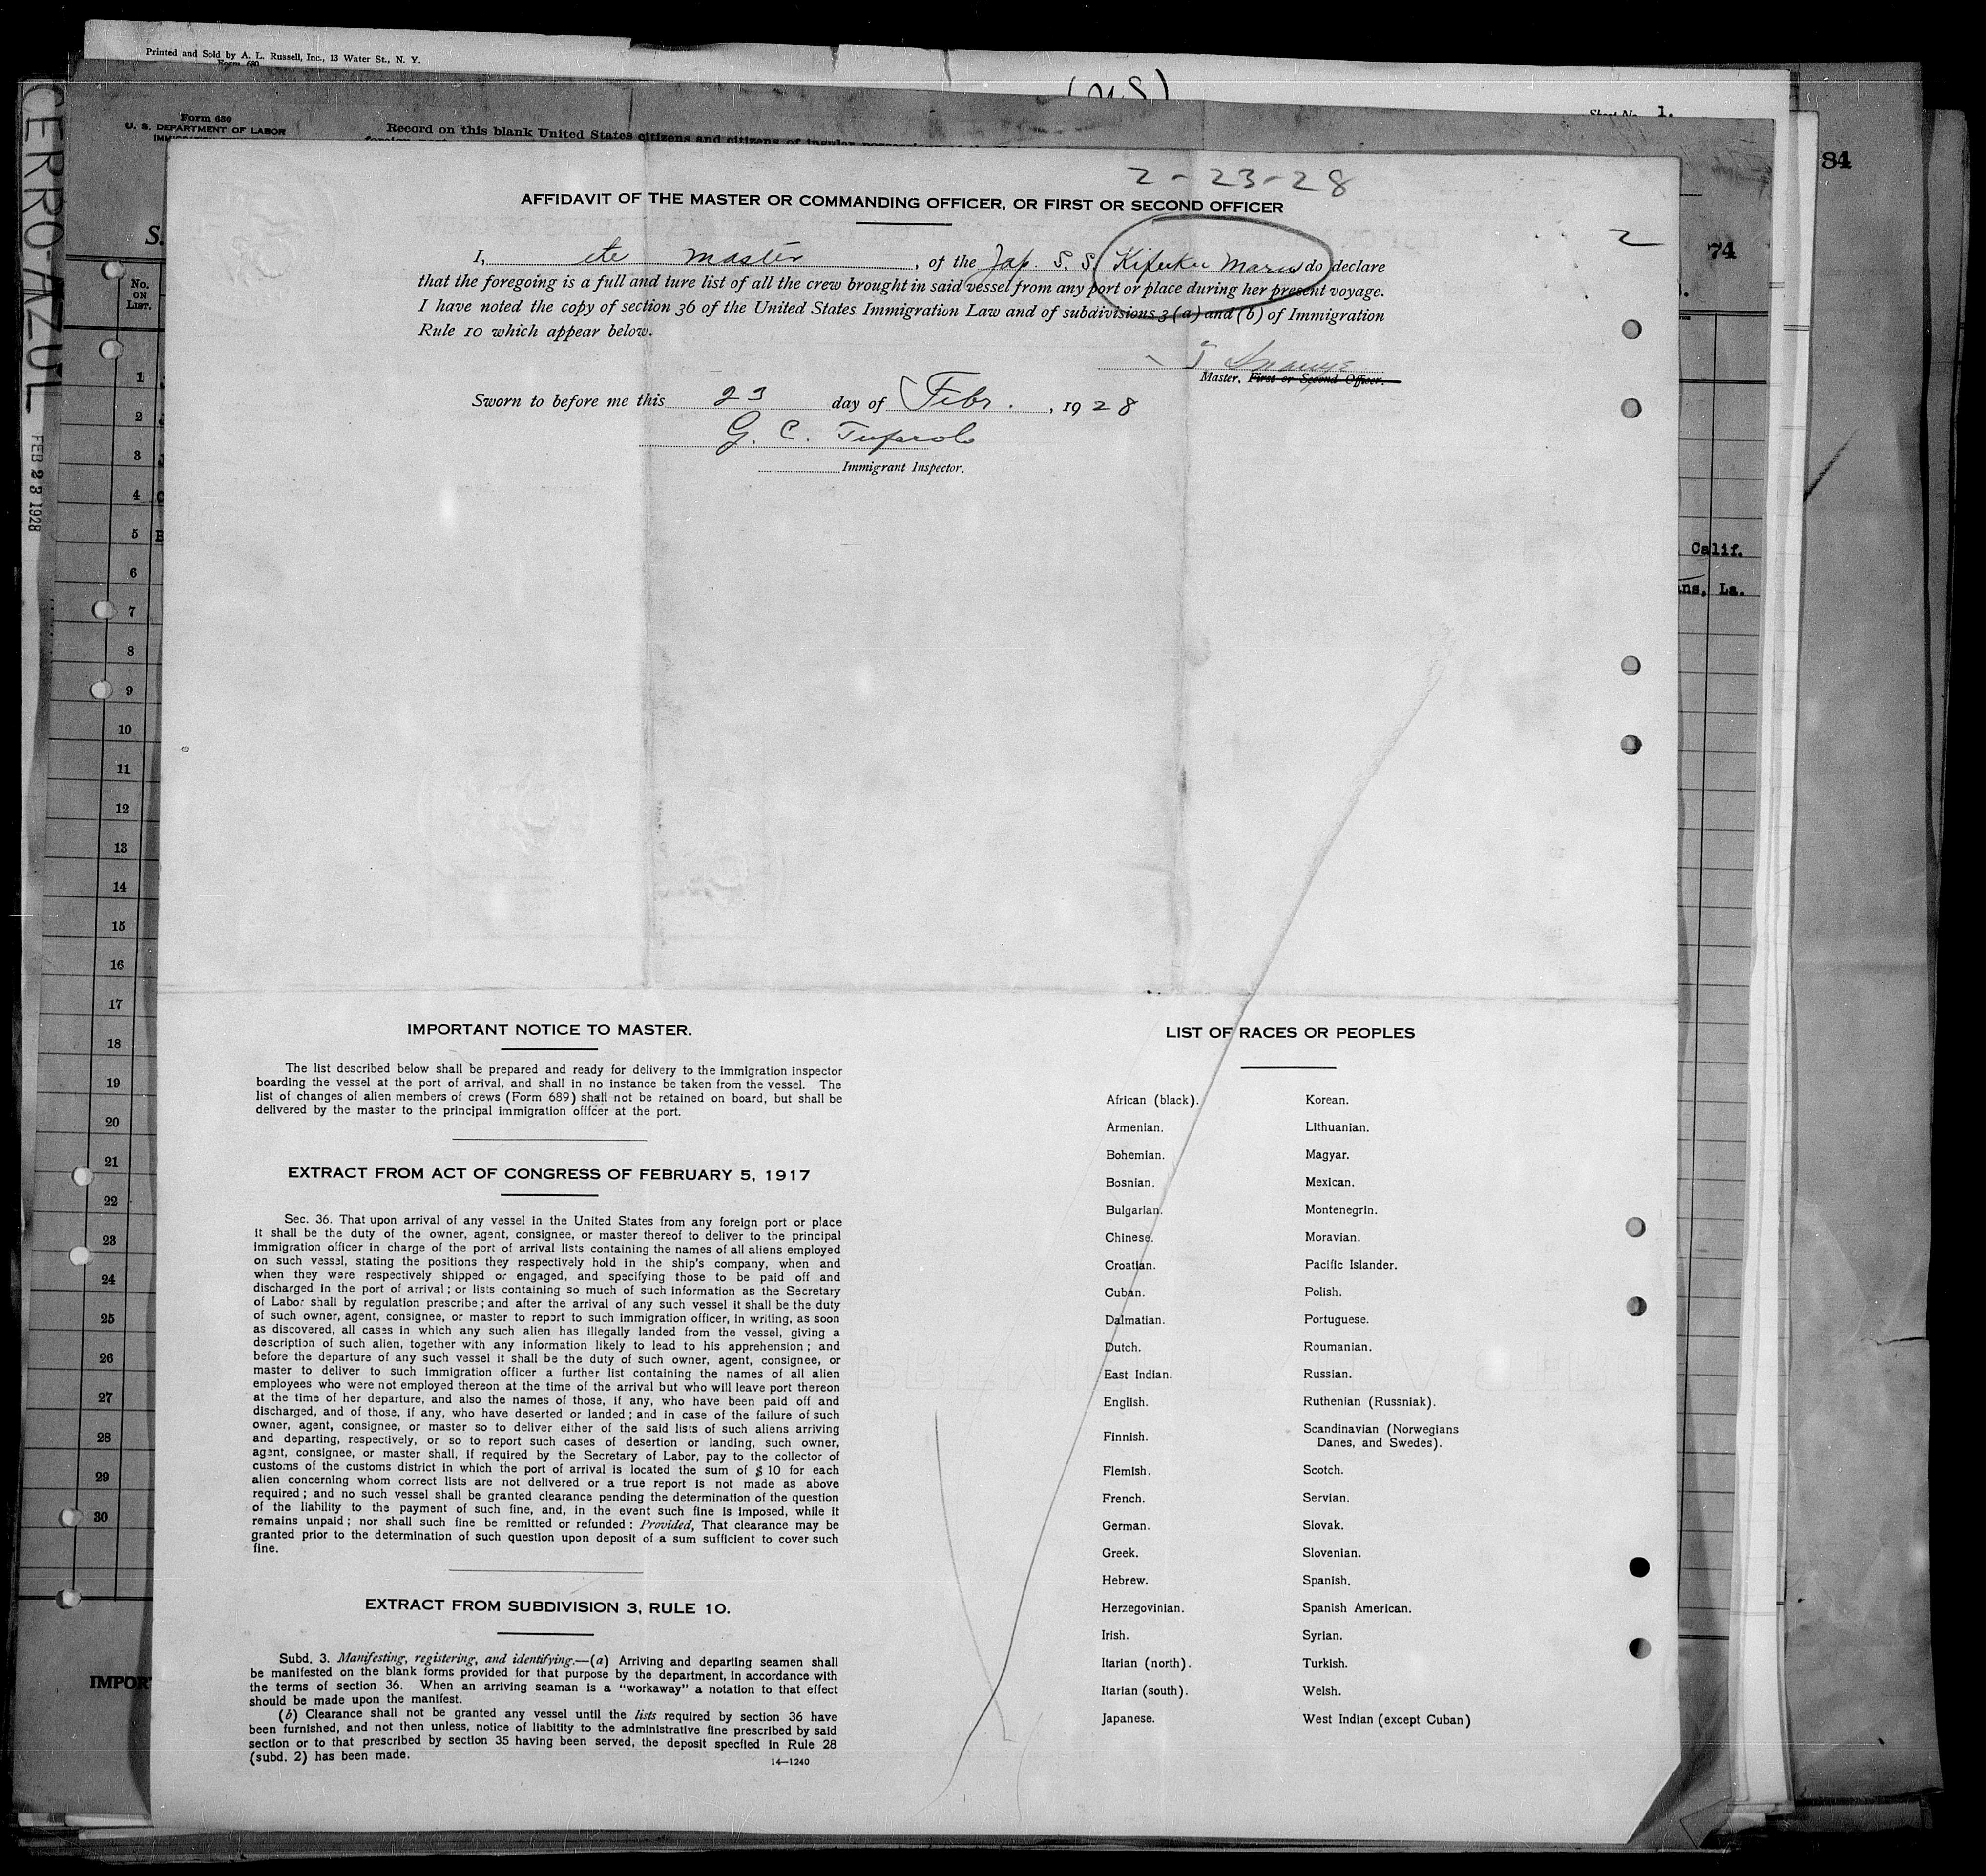 Printed and Sold by A. L. Russell, Inc., 13 Water St., N. Y.
Form 680
Sheet No. 1.
Form 680
U. S. DEPARTMENT OF LABOR
Record on this blank United States citizens and citizens of insular
84
CERRO-AZUL
FEB 23 1928
2-23-28
AFFIDAVIT OF THE MASTER OR COMMANDING OFFICER, OR FIRST OR SECOND OFFICER
2
74
S.
I, master, of the Jap S. S. Kifuku Maru do declare
that the foregoing is a full and ture list of all the crew brought in said vessel from any port or place during her present voyage.
I have noted the copy of section 36 of the United States Immigration Law and of subdivisions 3 (a) and (b) of Immigration
Rule 10 which appear below.
Master, First or Second Officer.
Sworn to before me this 23 day of Febr., 1928
G. C.
Immigrant Inspector.
No.
ON
LIST.
1
2
3
4
5
6
7
8
9
10
11
12
13
14
15
16
17
18
19
20
21
22
23
24
25
26
27
28
29
30
Calif.
La.
IMPOR
IMPORTANT NOTICE TO MASTER.
The list described below shall be prepared and ready for delivery to the immigration inspector
boarding the vessel at the port of arrival, and shall in no instance be taken from the vessel. The
list of changes of alien members of crews (Form 689) shall not be retained on board, but shall be
delivered by the master to the principal immigration officer at the port.
EXTRACT FROM ACT OF CONGRESS OF FEBRUARY 5, 1917
Sec. 36. That upon arrival of any vessel in the United States from any foreign port or place
it shall be the duty of the owner, agent, consignee, or master thereof to deliver to the principal
immigration officer in charge of the port of arrival lists containing the names of all aliens employed
on such vessel, stating the positions they respectively hold in the ship's company, when and
when they were respectively shipped or engaged, and specifying those to be paid off and
discharged in the port of arrival; or lists containing so much of such information as the Secretary
of Labor shall by regulation prescribe; and after the arrival of any such vessel it shall be the duty
of such owner, agent, consignee, or master to report to such immigration officer, in writing, as soon
as discovered, all cases in which any such alien has illegally landed from the vessel, giving a
description of such alien, together with any information likely to lead to his apprehension; and
before the departure of any such vessel it shall be the duty of such owner, agent, consignee, or
master to deliver to such immigration officer a further list containing the names of all alien
employees who were not employed thereon at the time of the arrival but who will leave port thereon
at the time of her departure, and also the names of those, if any, who have been paid off and
discharged, and of those, if any, who have deserted or landed; and in case of the failure of such
owner, agent, consignee, or master so to deliver either of the said lists of such aliens arriving
and departing, respectively, or so to report such cases of desertion or landing, such owner,
agent, consignee, or master shall, if required by the Secretary of Labor, pay to the collector of
customs of the customs district in which the port of arrival is located the sum of $ 10 for each
alien concerning whom correct lists are not delivered or a true report is not made as above
required; and no such vessel shall be granted clearance pending the determination of the question
of the liability to the payment of such fine, and, in the event such fine is imposed, while it
remains unpaid; nor shall such fine be remitted or refunded: Provided, That clearance may be
granted prior to the determination of such question upon deposit of a sum sufficient to cover such
fine.
EXTRACT FROM SUBDIVISION 3, RULE 10.
Subd. 3. Manifesting, registering, and identifying.—(a) Arriving and departing seamen shall
be manifested on the blank forms provided for that purpose by the department, in accordance with
the terms of section 36. When an arriving seaman is a "workaway" a notation to that effect
should be made upon the manifest.
(b) Clearance shall not be granted any vessel until the lists required by section 36 have
been furnished, and not then unless, notice of liabitity to the administrative fine prescribed by said
section or to that prescribed by section 35 having been served, the deposit specfied in Rule 28
(subd. 2) has been made.
14—1240
LIST OF RACES OR PEOPLES
African (black).
Armenian.
Bohemian.
Bosnian.
Bulgarian.
Chinese.
Croatian.
Cuban.
Dalmatian.
Dutch.
East Indian.
English.
Finnish.
Flemish.
French.
German.
Greek.
Hebrew.
Herzegovinian.
Irish.
Itarian (north).
Itarian (south).
Japanese.
Korean.
Lithuanian.
Magyar.
Mexican.
Montenegrin.
Moravian.
Pacific Islander.
Polish.
Portuguese.
Roumanian.
Russian.
Ruthenian (Russniak).
Scandinavian (Norwegians
Danes, and Swedes).
Scotch.
Servian.
Slovak.
Slovenian.
Spanish.
Spanish American.
Syrian.
Turkish.
Welsh.
West Indian (except Cuban)